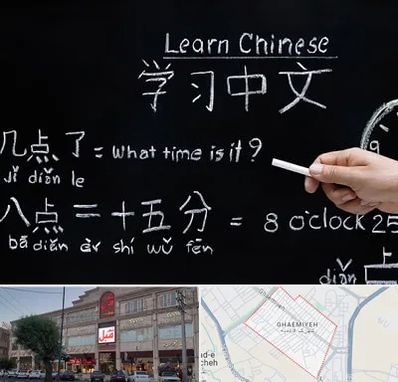 Learn Chinese
学习中文
几点了 = What time is it?
Jǐ diǎn le
八点二十五分 = 8 o'clock 25
bā diǎn èr shí wǔ fēn
上
diǎn
GHAEMIYEH